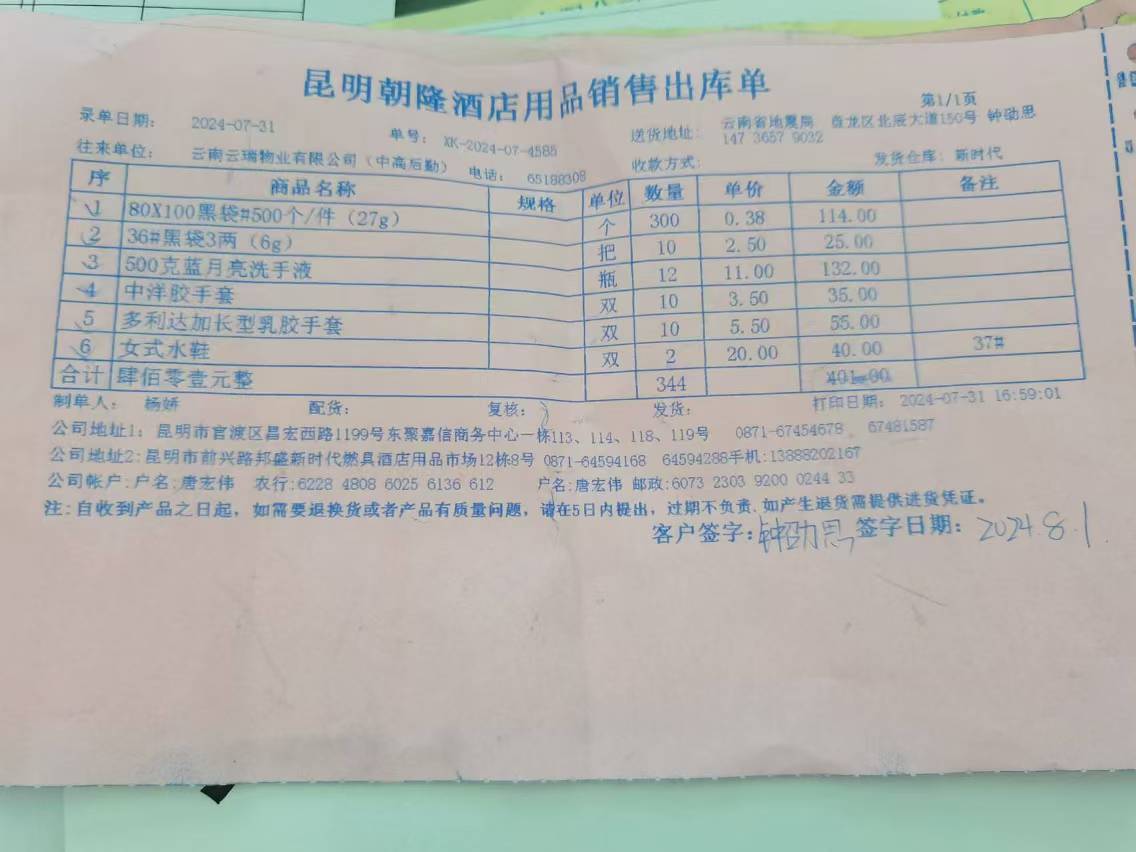 昆明朝隆酒店用品销售出库单
第1/1页
录单日期: 2024-07-31 单号: XK-2024-07-4585 送货地址: 云南省地震局 盘龙区北辰大道150号 钟劭思
147 3657 9032
往来单位: 云南云瑞物业有限公司（中高后勤） 电话: 65188308 收款方式: 发货仓库: 新时代
序 商品名称 规格 单位 数量 单价 金额 备注
1 80X100黑袋#500个/件（27g） 个 300 0.38 114.00
2 36#黑袋3两（6g） 把 10 2.50 25.00
3 500克蓝月亮洗手液 瓶 12 11.00 132.00
4 中洋胶手套 双 10 3.50 35.00
5 多利达加长型乳胶手套 双 10 5.50 55.00
6 女式水鞋 双 2 20.00 40.00 37#
合计 肆佰零壹元整 344 401.00
制单人: 杨娇 配货: 复核: 发货: 打印日期: 2024-07-31 16:59:01
公司地址1: 昆明市官渡区昌宏西路1199号东聚嘉信商务中心一栋113、114、118、119号 0871-67454678 67481587
公司地址2:昆明市前兴路邦盛新时代燃具酒店用品市场12栋8号 0871-64594168 64594288手机:13888202167
公司帐户:户名:唐宏伟 农行:6228 4808 6025 6136 612 户名:唐宏伟 邮政:6073 2303 9200 0244 33
注:自收到产品之日起，如需要退换货或者产品有质量问题，请在5日内提出，过期不负责.如产生退货需提供进货凭证。
客户签字:钟劭思 签字日期: 2024.8.1